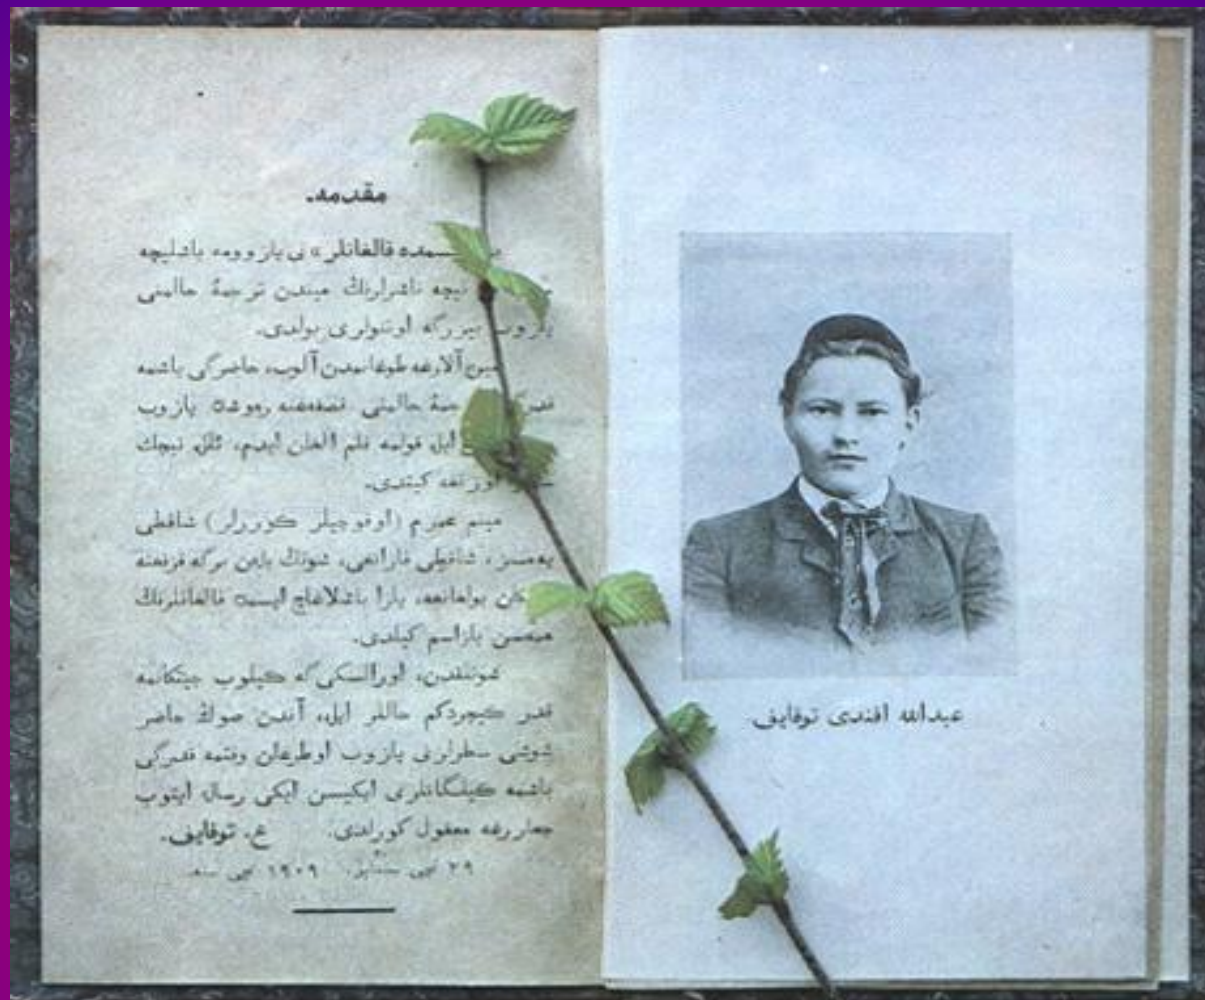 مقدمه.
قالغانلر» نی یازوومه باشلیچه
نیچه ناشرلرنڭ میندن ترجمهٔ حالمنی
یازوب بیررگه اوتنولری بولدی.
مین آلارغه طوغانمدن آلوب، حاضرگی یاشمه
حالمنی یازوب
ایل قولمه قلم آلغان ایدم،
کیتدی.
مینم عمرم (اوقوچیلر کوررلر) شاقطی
یهمسز، شاقطی قارانغی، شونڭ بلهن برگه
بولغانغه، یازا باشلاغاچ ایسمده قالغانلرنڭ
همهسن یازاسم کیلدی.
شونلقدن، اورالسکی گه کیلوب جیتکانمه
قدر کیچردکم حاللر ایله، آندن صوڭ حاضر
شوشی سطرلرنی یازوب اوطرغان وقتمه قدرگی
باشمه کیلگانلرنی ایکیسن ایکی رساله ایتوب
چغاررغه معقول کورلدی. ع. توقایف.
٢٩ نچی سنتابر. ١٩٠٩ نچی سنه.
عبدالله افندی توقایف